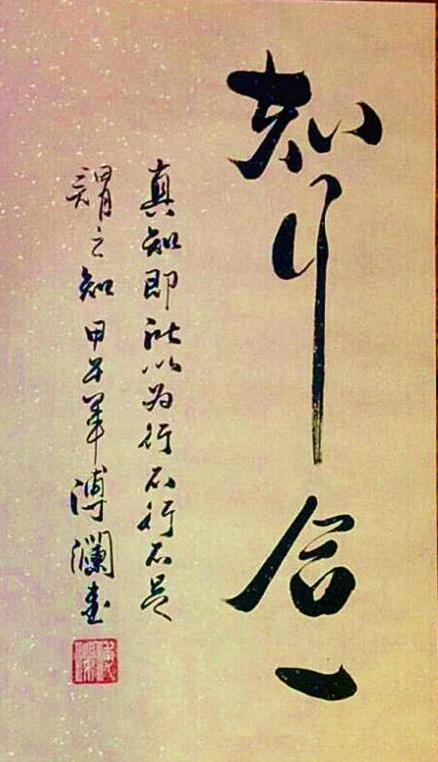 知行合一
真知即所以为行不行不足
谓之知甲午年溥澜书